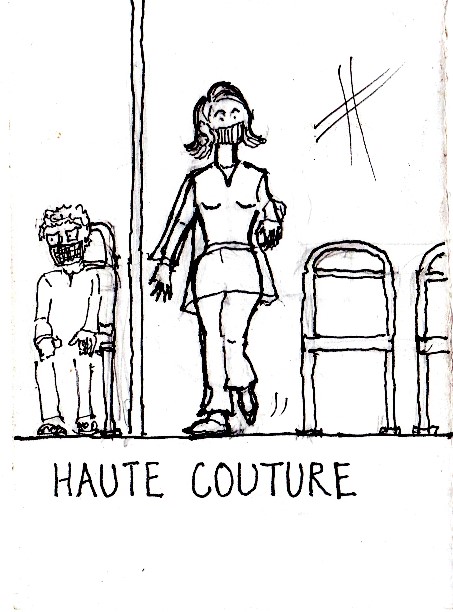 HAUTE COUTURE